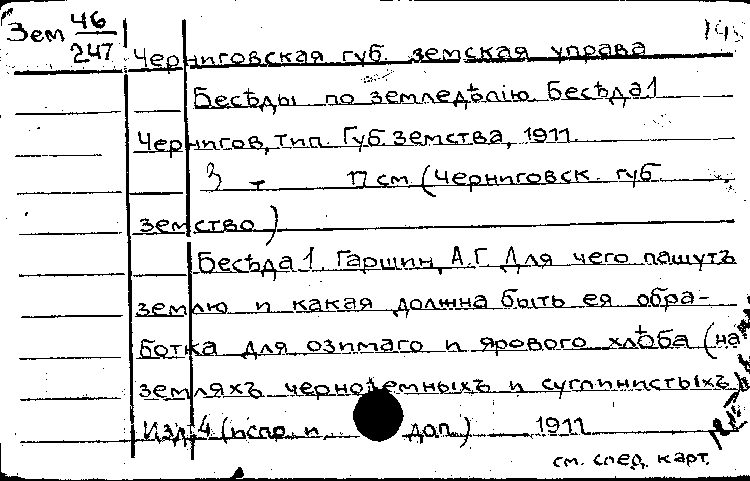 Зем 46/247
Черниговская губ. земская управа
Бесѣды по земледѣлію. Бесѣда 1
Чернигов, тип. Губ. земства, 1911.
3 т 17 см (Черниговск. губ.
земство)
Бесѣда 1. Гаршин, А.Г. Для чего пашутъ
землю и какая должна быть ея обра-
ботка для озимаго и ярового хлѣба (на
земляхъ черноземныхъ и суглинистыхъ)
Изд. 4 (испр. и доп.) 1911
см. след. карт.